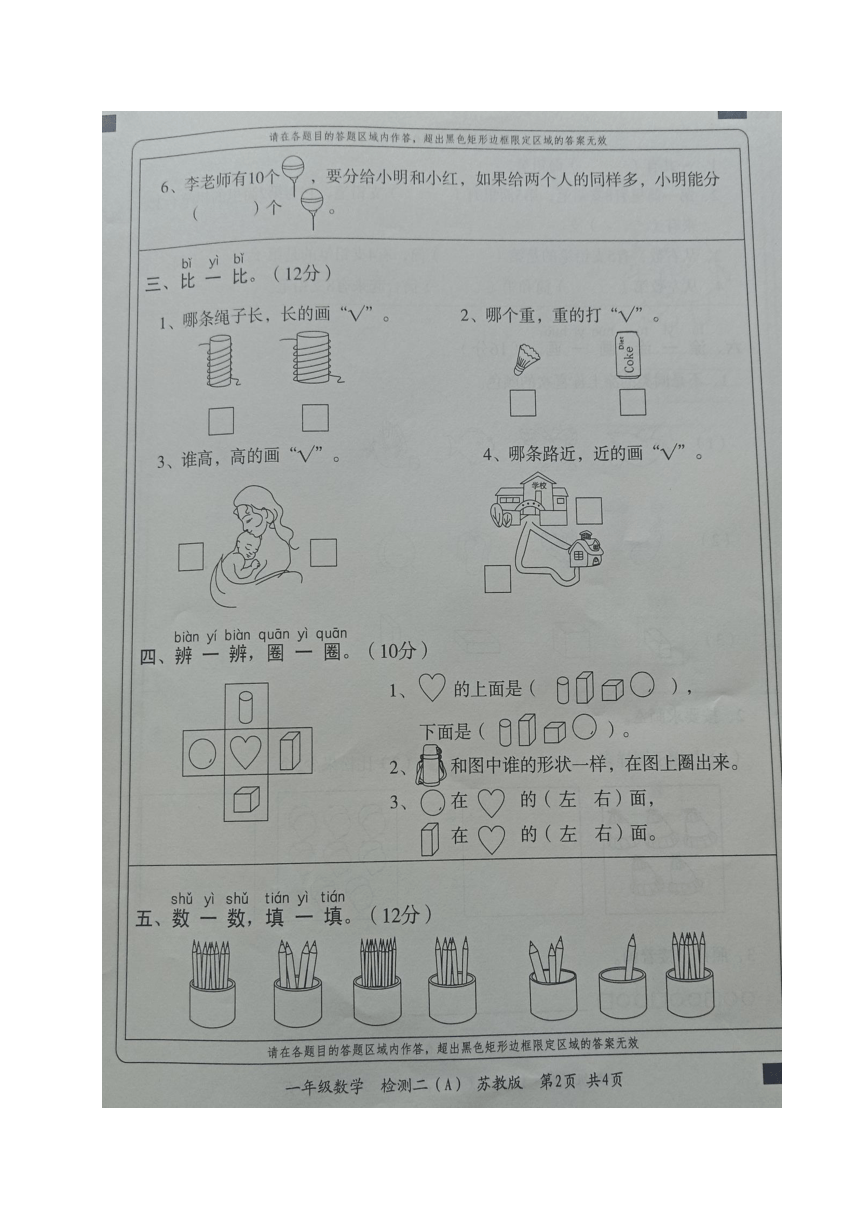 请在各题目的答题区域内作答，超出黑色矩形边框限定区域的答案无效
6、李老师有10个 ，要分给小明和小红，如果给两个人的同样多，小明能分
（ ）个 。
bǐ yì bǐ
三、比 一 比。（12分）
1、哪条绳子长，长的画“√”。
2、哪个重，重的打“√”。
Diet
Coke
3、谁高，高的画“√”。
4、哪条路近，近的画“√”。
学校
biàn yí biàn quān yì quān
四、辨 一 辨，圈 一 圈。（10分）
1、 的上面是（ ），
下面是（ ）。
2、 和图中谁的形状一样，在图上圈出来。
3、 在 的（ 左 右）面，
在 的（ 左 右）面。
shǔ yì shǔ tián yì tián
五、数 一 数，填 一 填。（12分）
请在各题目的答题区域内作答，超出黑色矩形边框限定区域的答案无效
一年级数学 检测二（A） 苏教版 第2页 共4页